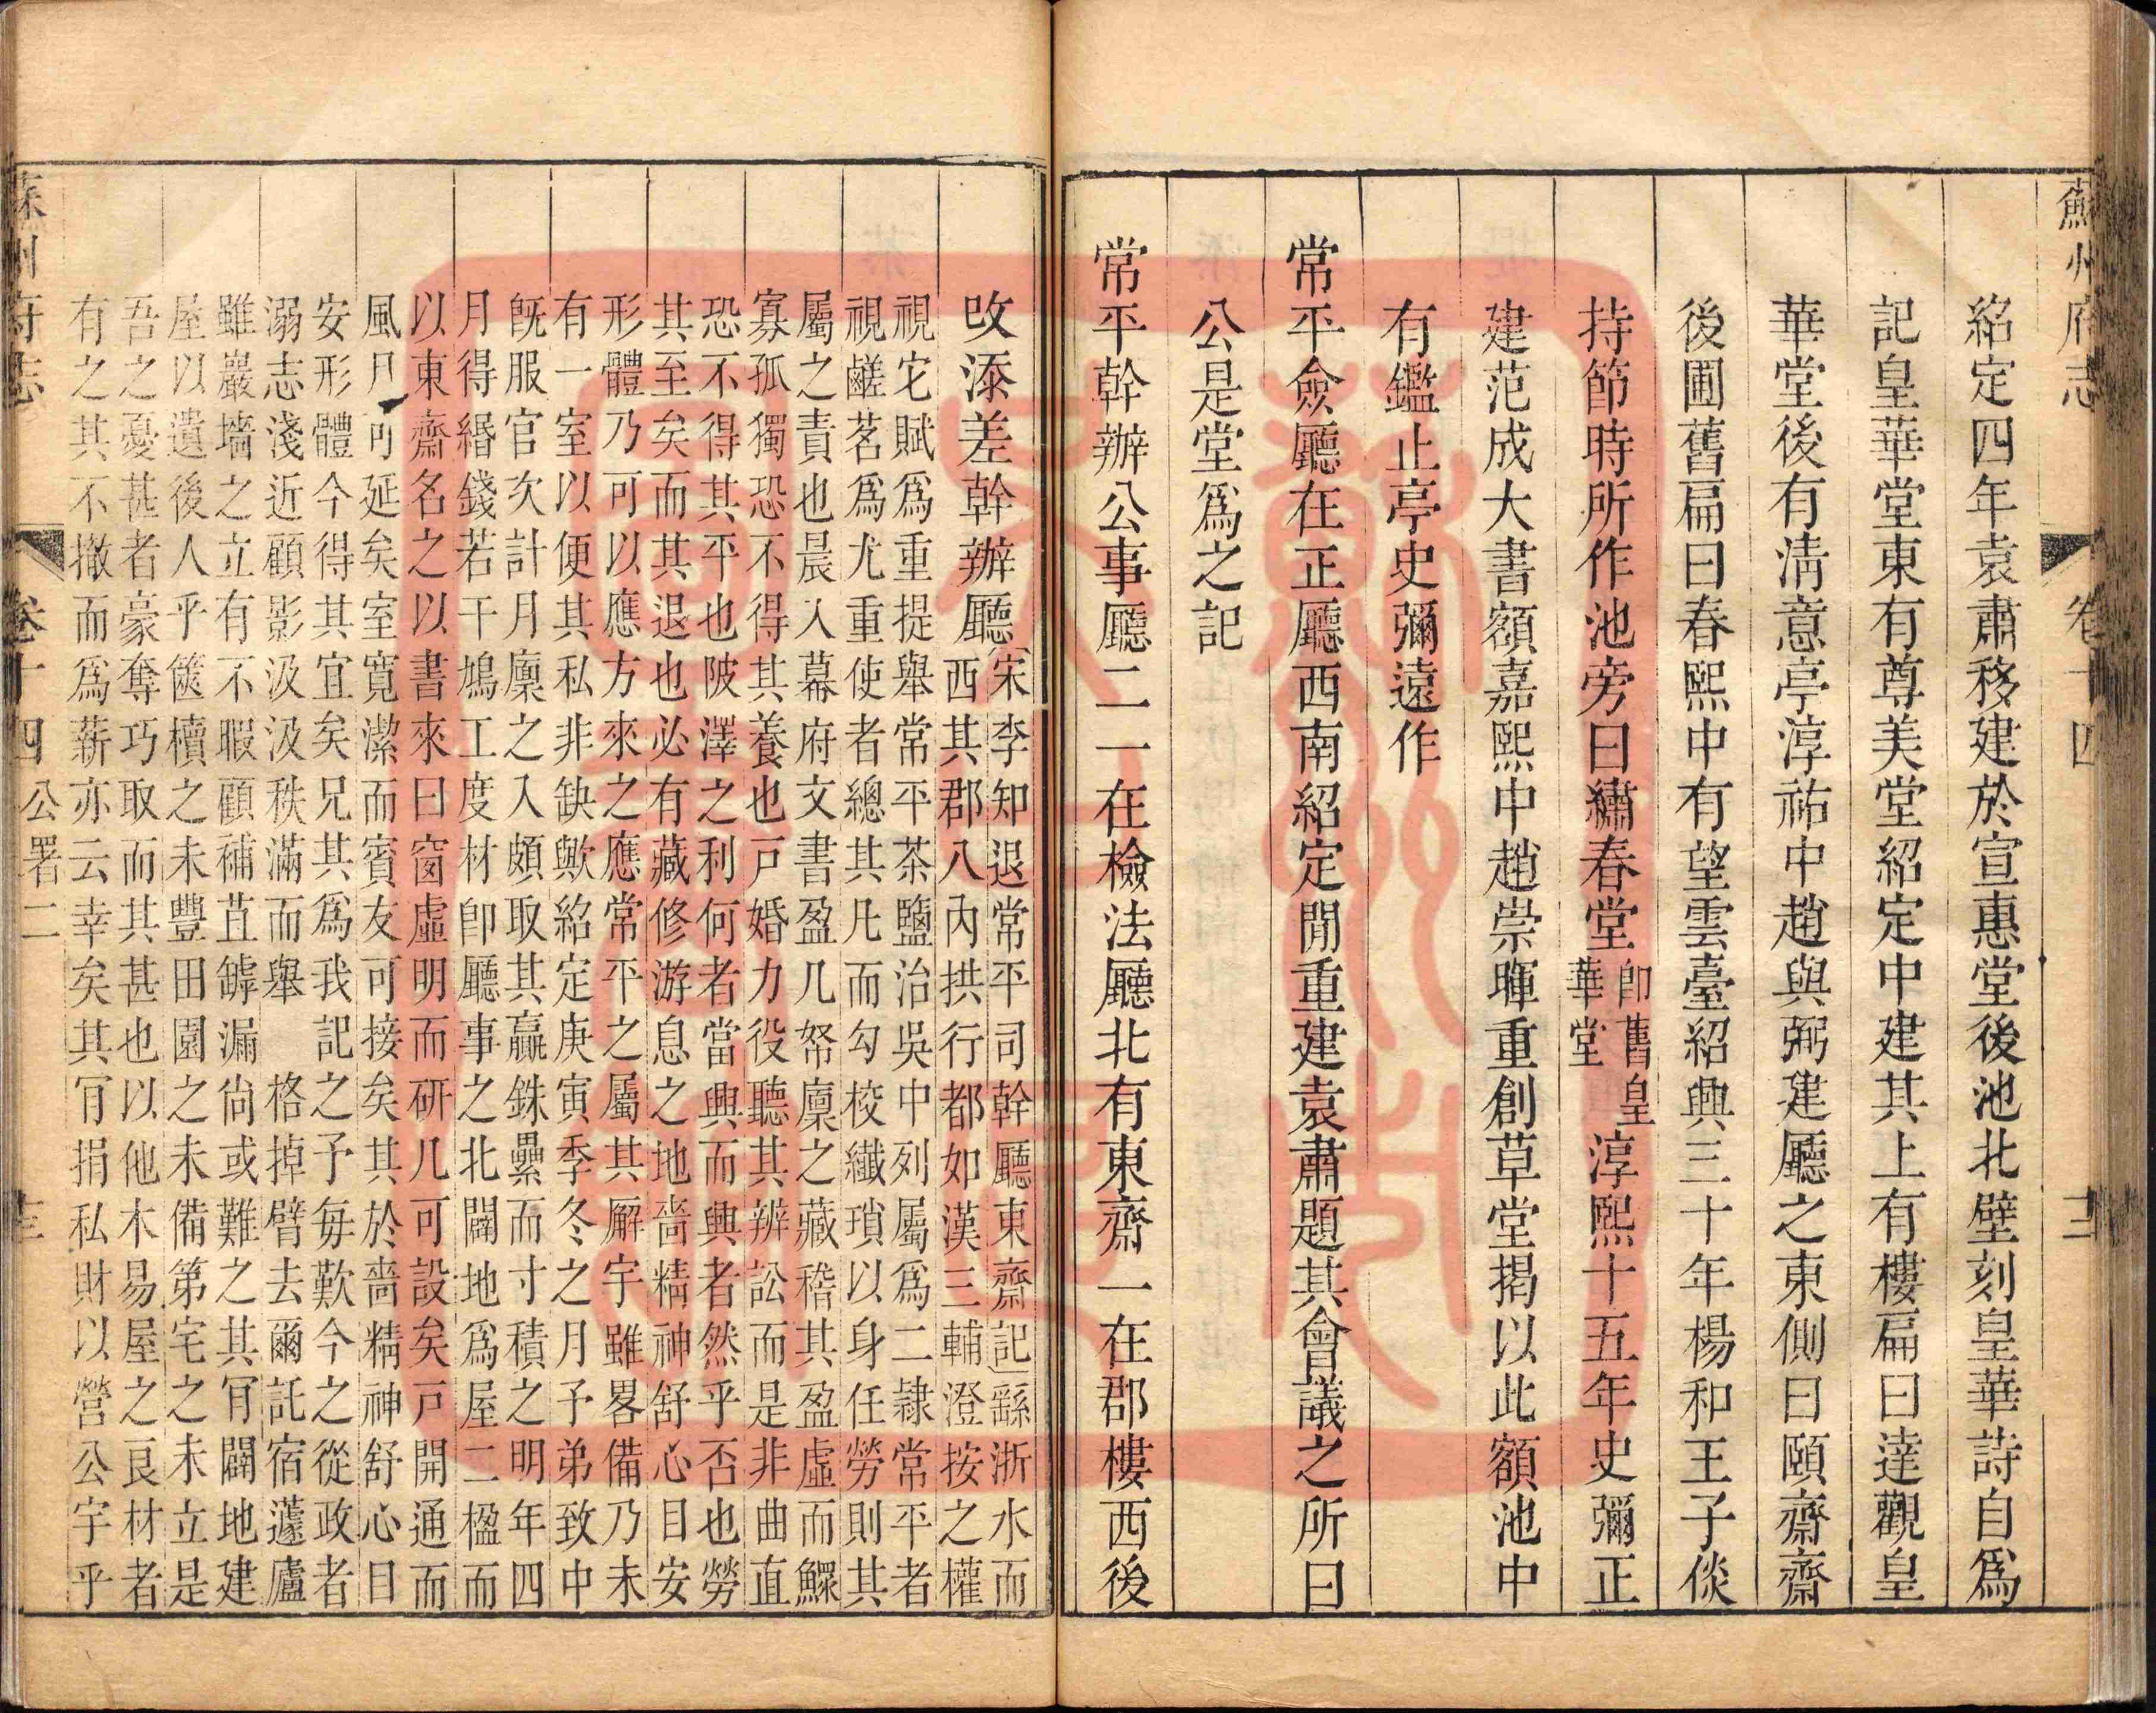 蘇州府志 卷十四 十二
紹定四年袁肅移建於宣惠堂後池北壁刻皇華詩自爲
記皇華堂東有尊美堂紹定中建其上有樓扁曰達觀皇
華堂後有淸意亭淳祐中趙與弼建廳之東側曰頤齋齋
後圃舊扁曰春熙中有望雲臺紹興三十年楊和王子倓
持節時所作池旁曰繡春堂卽舊皇華堂淳熙十五年史彌正
建范成大書額嘉熙中趙崇暉重創草堂揭以此額池中
有鑑止亭史彌遠作
常平僉廳在正廳西南紹定閒重建袁肅題其會議之所曰
公是堂爲之記
常平幹辦公事廳二一在檢法廳北有東齋一在郡樓西後
改添差幹辦廳
宋李知退常平司幹廳東齋記繇浙水而
西其郡八內拱行都如漢三輔澄按之權
視它賦爲重提舉常平茶鹽治吳中列屬爲二隷常平者
視鹺茗爲尤重使者總其凡而勾校纖瑣以身任勞則其
屬之責也晨入幕府文書盈几帑廩之藏稽其盈虛而鰥
寡孤獨恐不得其養也戸婚力役聽其辨訟而是非曲直
恐不得其平也陂澤之利何者當興而興者然乎否也勞
其至矣而其退也必有藏修游息之地嗇精神舒心目安
形體乃可以應方來之應常平之屬其廨宇雖畧備乃未
有一室以便其私非缺歟紹定庚寅季冬之月予弟致中
旣服官次計月廩之入頗取其贏銖纍而寸積之明年四
月得緡錢若干鳩工度材卽廳事之北闢地爲屋二楹而
以東齋名之以書來曰窗虛明而硏几可設矣戸開通而
風月可延矣室寬潔而賓友可接矣其於嗇精神舒心目
安形體今得其宜矣兄其爲我記之予每歎今之從政者
溺志淺近顧影汲汲秩滿而舉 格掉臂去爾託宿蘧廬
雖巖墻之立有不暇顧補苴罅漏尙或難之其肯闢地建
屋以遺後人乎篋櫝之未豐田園之未備第宅之未立是
吾之憂甚者豪奪巧取而其甚也以他木易屋之良材者
有之其不撤而爲薪亦云幸矣其肯捐私財以營公宇乎
蘇州府志 卷十四 公署二 十三